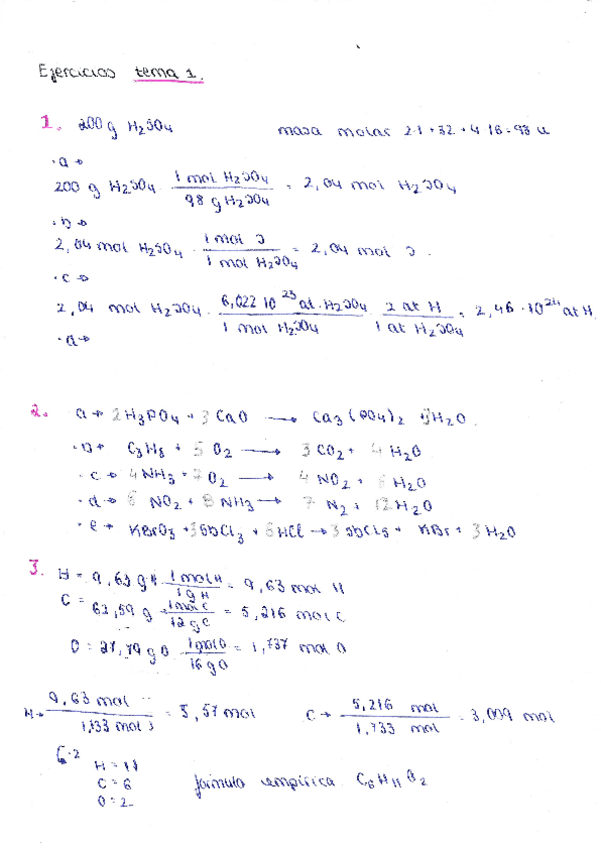 Ejercicios tema 1.
1. 200 g H2SO4 masa molar 2·1+32+4·16=98 u
·a→
200 g H2SO4 · 1 mol H2SO4 / 98 g H2SO4 = 2,04 mol H2SO4
·b→
2,04 mol H2SO4 · 1 mol S / 1 mol H2SO4 = 2,04 mol S.
·c→
2,04 mol H2SO4 · 6,022·10^23 at·H2SO4 / 1 mol H2SO4 · 2 at H / 1 at H2SO4 = 2,46·10^24 at H
·d→
2. a→ 2H3PO4 + 3CaO → Ca3(PO4)2 + 3H2O.
·b→ C3H8 + 5 O2 → 3 CO2 + 4 H2O
·c→ 4 NH3 + 7 O2 → 4 NO2 + 6 H2O
·d→ 6 NO2 + 8 NH3 → 7 N2 + 12 H2O
·e→ KBrO3 + 3SbCl3 + 6HCl → 3 SbCl5 + KBr + 3 H2O
3. H = 9,63 g H · 1 mol H / 1 g H = 9,63 mol H
C = 62,59 g · 1 mol C / 12 g C = 5,216 mol C
O = 27,79 g O · 1 mol O / 16 g O = 1,737 mol O
H→ 9,63 mol / 1,733 mol = 5,57 mol C→ 5,216 mol / 1,733 mol = 3,009 mol
·2
H = 11
C = 6
O = 2
formula empírica C6H11O2